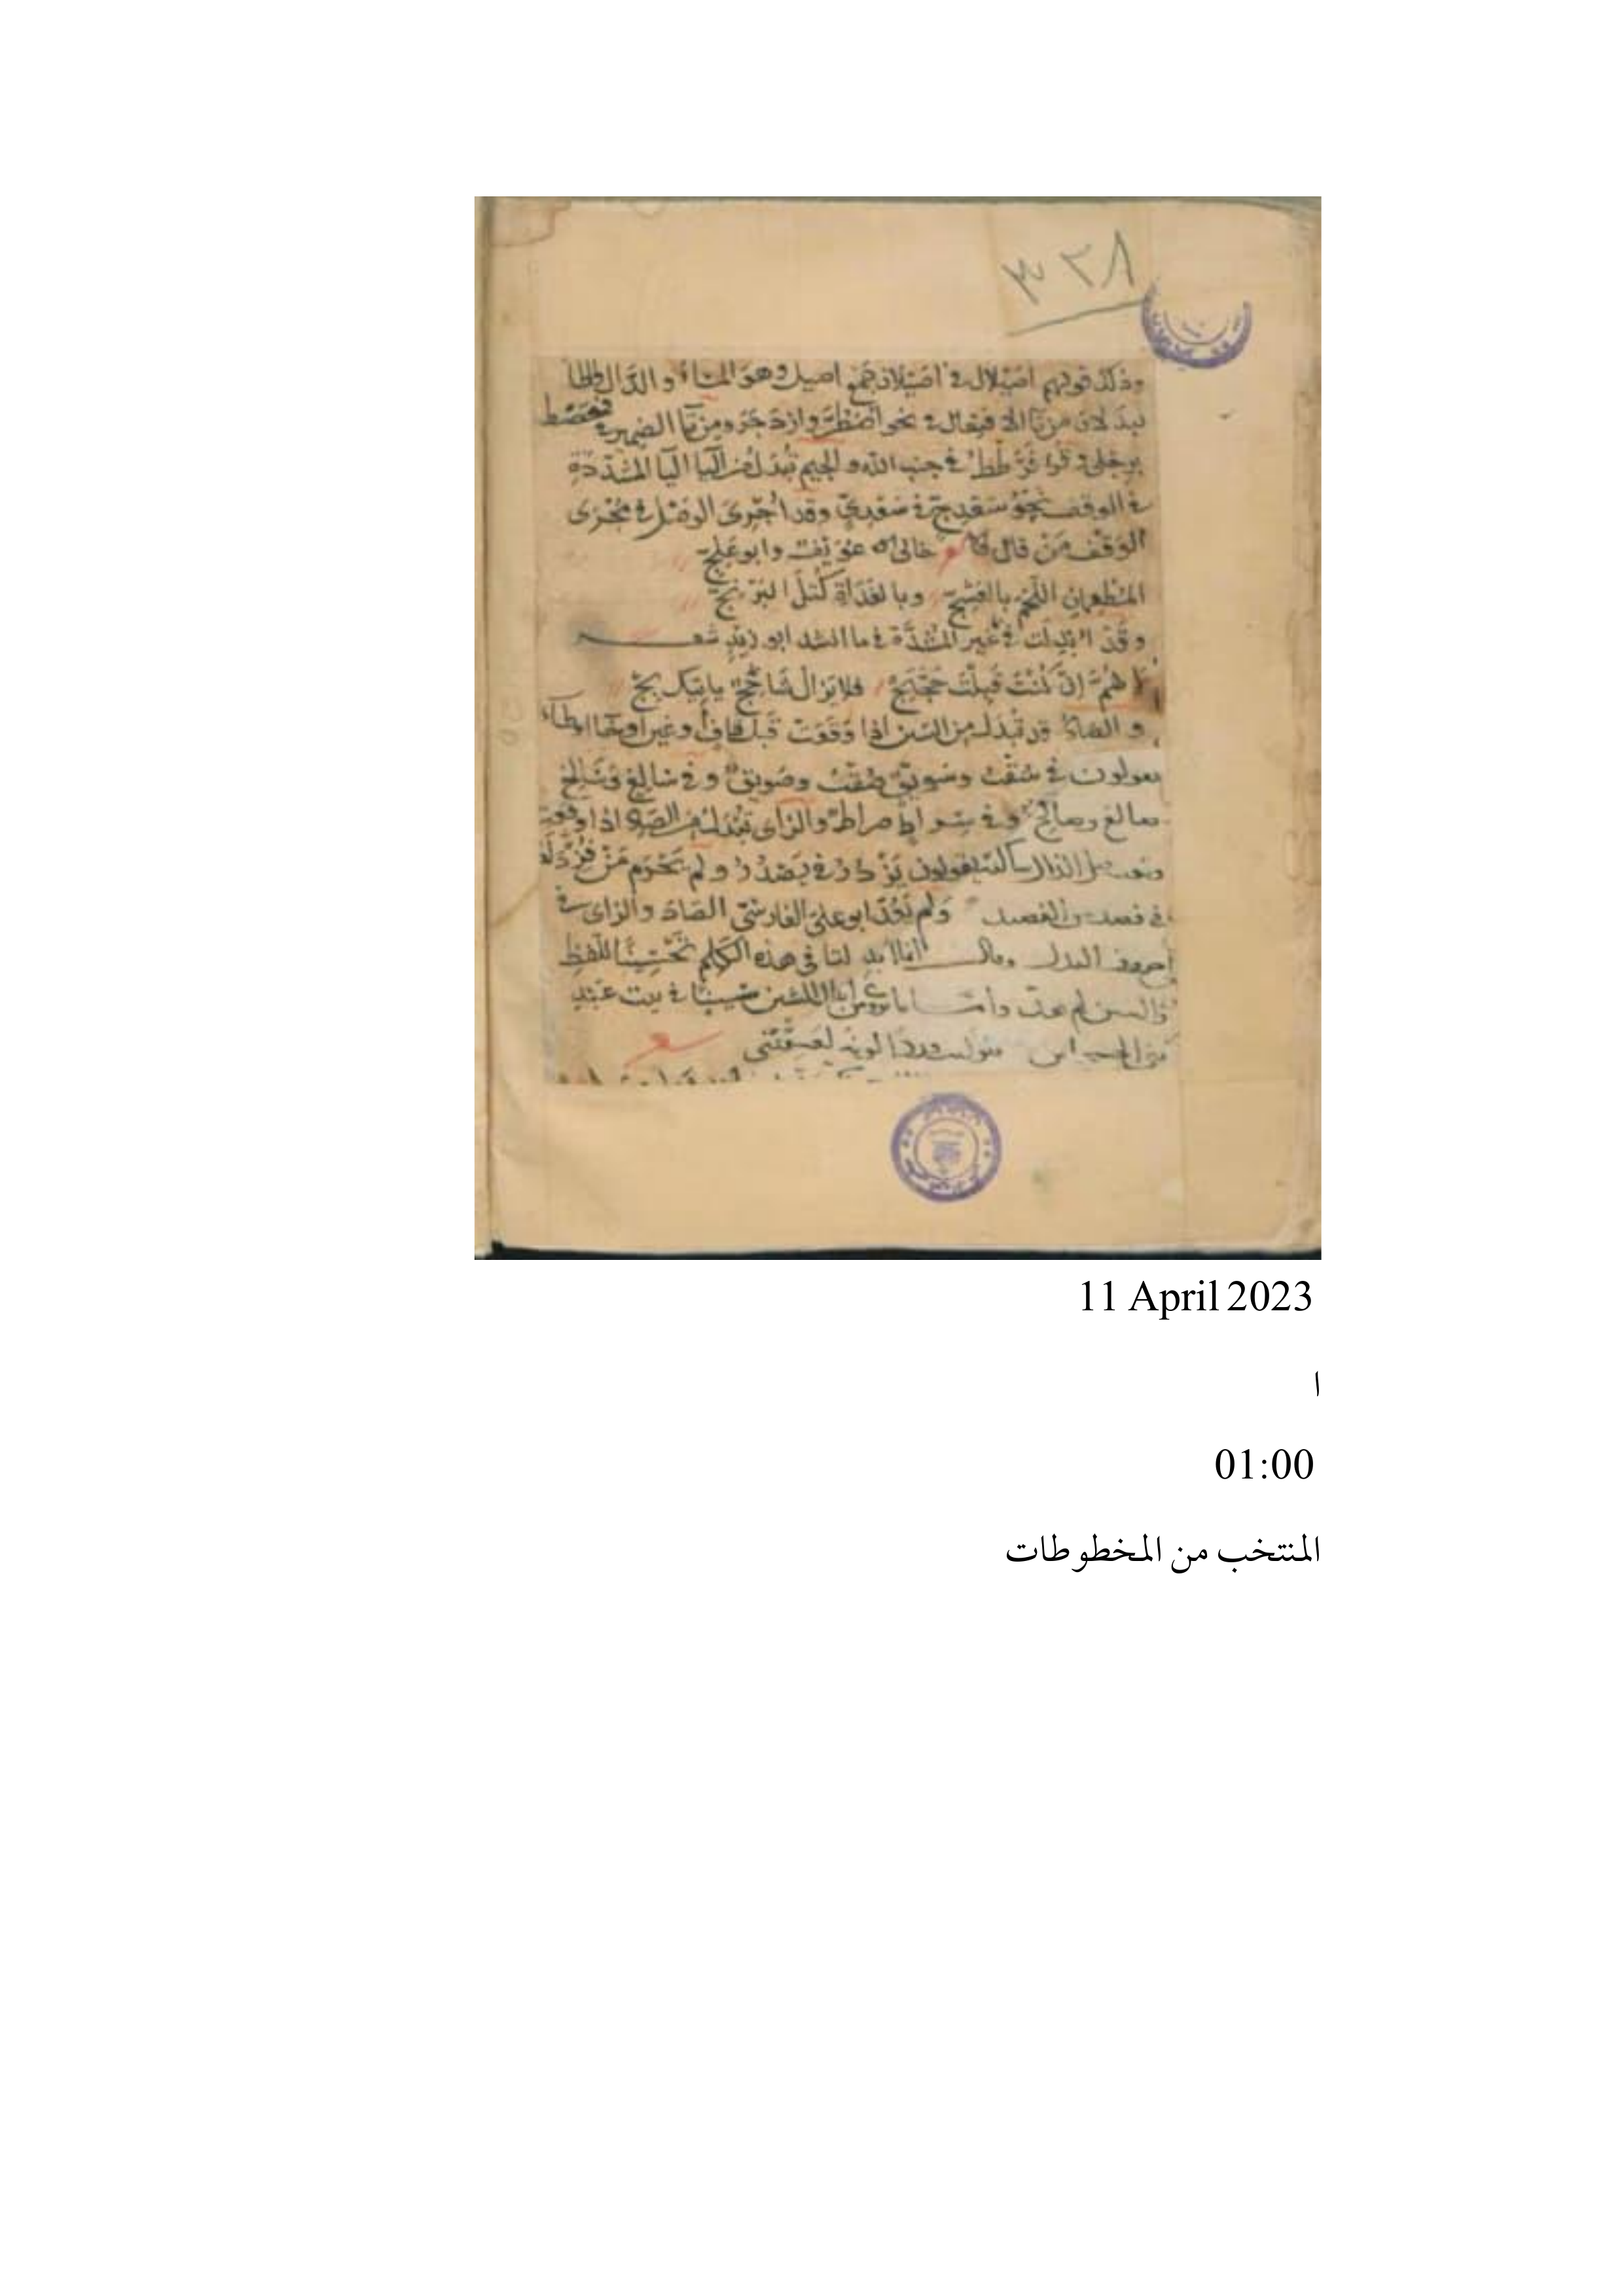 ٣٢٨
وذلك قولهم اصيلال في اصيلان جمع اصيل وهو المساء والدال والطا
تبدلان من تا الافتعال في نحو اضطر وازدجر ومن تا الضمير في فحصط
برجلي و فرطط في جنب الله والجيم تبدل من اليا اليا المشددة
في الوقف نحو سعدج في سعدي وقد اجرى الوصل في مجرى
الوقف من قال خالى عويف وابو علج
المطعمان اللحم بالعشج وبالغداة كتل البرنج
وقد ابدلت في غير المشددة في ما انشد ابو زيد شعر
لاهم ان كنت قبلت حجتج فلا يزال شاحج ياتيك بج
والصاد قد تبدل من السين اذا وقعت قبل قاف او غين او خا او طاء
يقولون في سقت وسويق صقت وصويق وفي سالغ وسالخ
صالغ وصالخ وفي سراط صراط والزاى تبدل من الصاد اذا وقعت
قبل الدال ساكنة يقولون يزدر في يصدر ولم يحرم من فزد له
في فصد من الفصيد ولم يعد ابو علي الفارسي الصاد والزاى في
حروف البدل وقال انما ابدلتا في هذه الكلم تحسينا للفظ
والسين لم وأما من ابدال الشين سينا في بيت عبد
بني الحسحاس ورد لونه لعسقتني
شعر
11 April 2023
ا
01:00
المنتخب من المخطوطات